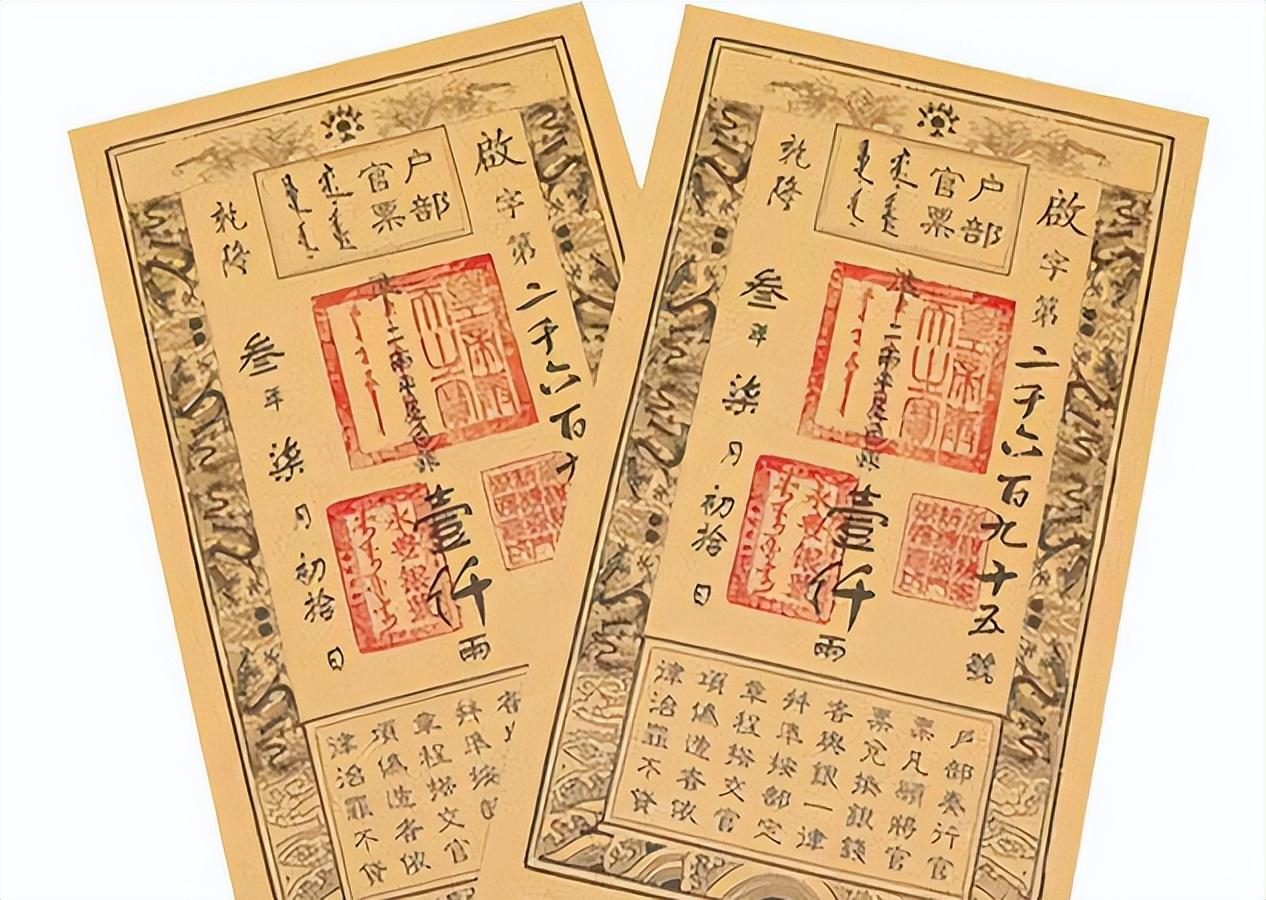 啟字第二千六百
户部
官票
二兩平足色銀壹仟兩
乾隆叁年柒月初拾日
章程搭交官
項偽造者依
律治罪不貸
啟字第二千六百九十五號
户部
官票
二兩平足色銀壹仟兩
乾隆叁年柒月初拾日
户部奏行官
票凡願將官
票兌換銀錢
者與銀一律
準按部定
章程搭交官
項偽造者依
律治罪不貸